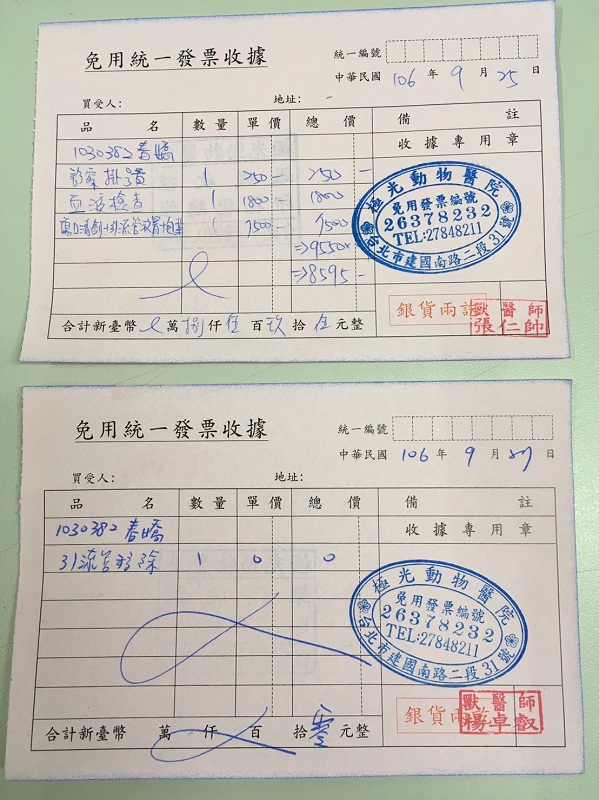 免用統一發票收據
統一編號
中華民國 106 年 9 月 25 日
買受人： 地址：
品名 數量 單價 總價 備註
收據專用章
1030382 春嬌
診察掛號費 1 250- 250-
血液檢查 1 1800 1800
1 7500- 7500
⇒9550×
⇒8595-
極光動物醫院
免用發票編號
26378232
TEL:27848211
台北市建國南路二段31號
銀貨兩訖
獸醫師
張仁帥
合計新臺幣 萬捌仟伍百玖拾伍元整
免用統一發票收據
統一編號
中華民國 106 年 9 月 27 日
買受人： 地址：
品名 數量 單價 總價 備註
收據專用章
1030382 春嬌
引流管移除 1 0 0
極光動物醫院
免用發票編號
26378232
TEL:27848211
台北市建國南路二段31號
銀貨兩訖
獸醫師
楊卓叡
合計新臺幣 萬 仟 百 拾零元整